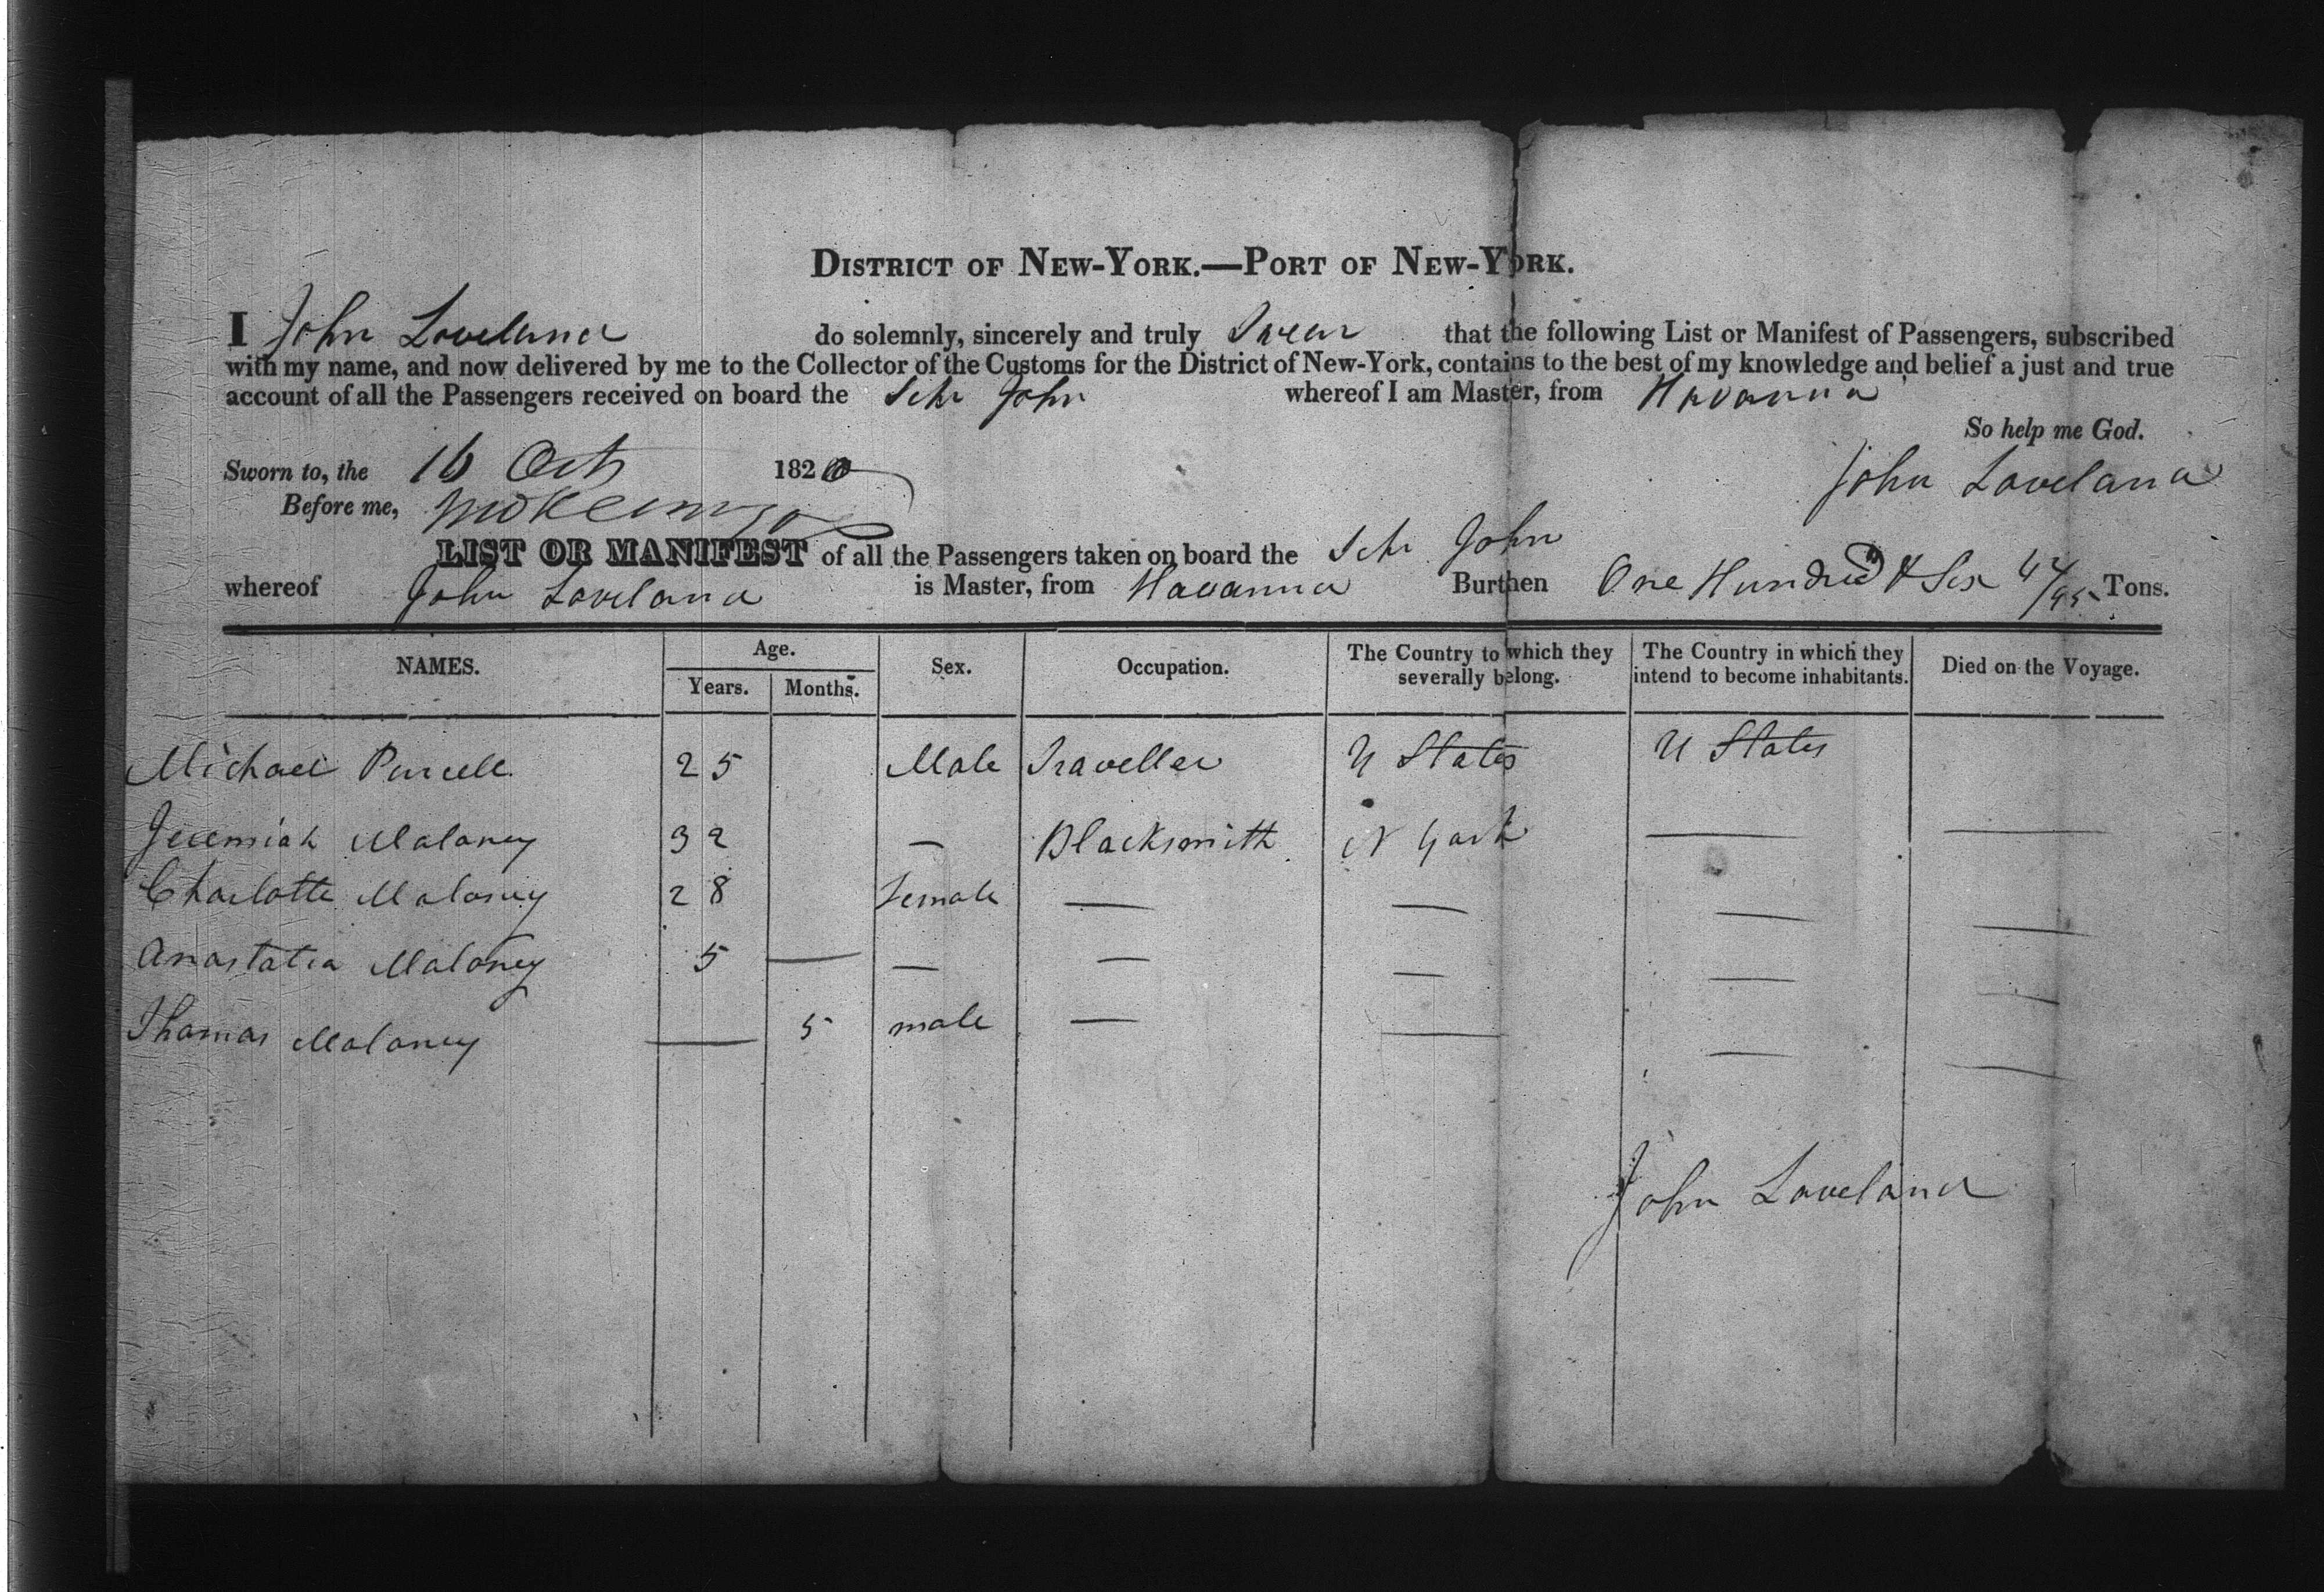 DISTRICT OF NEW-YORK.—PORT OF NEW-YORK.
I John Loveland do solemnly, sincerely and truly Swear that the following List or Manifest of Passengers, subscribed
with my name, and now delivered by me to the Collector of the Customs for the District of New-York, contains to the best of my knowledge and belief a just and true
account of all the Passengers received on board the Schr John whereof I am Master, from Havanna
So help me God.
Sworn to, the 16 Octr 182
John Loveland
Before me,
LIST OR MANIFEST of all the Passengers taken on board the Schr John
whereof John Loveland is Master, from Havanna Burthen One Hundred & Six /95 Tons.
NAMES. Age. Sex. Occupation. The Country to which they severally belong. The Country in which they intend to become inhabitants. Died on the Voyage.
Years. Months.
Michael Purcell 25 Male Traveller U States U States
Jeremiah Maloney 32 — Blacksmith N York — —
Charlotte Maloney 28 Female — — — —
Anastatia Maloney 5 — — — — — —
Thomas Maloney — 5 male — — — —
John Loveland